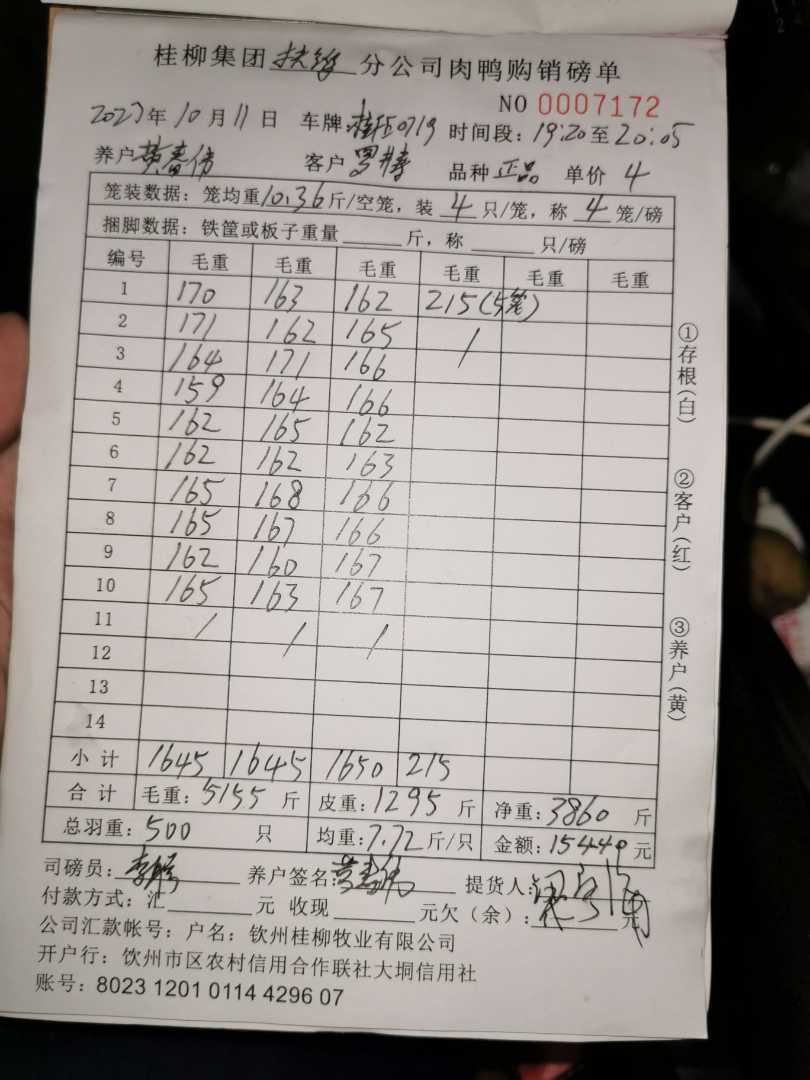 桂柳集团扶绥分公司肉鸭购销磅单
NO 0007172
2023年10月11日 车牌:桂 0719 时间段:19:20至20:05
养户黄春伟 客户罗 品种正品 单价4
笼装数据:笼均重10.36斤/空笼,装4只/笼,称4笼/磅
捆脚数据:铁筐或板子重量 斤,称 只/磅
编号 毛重 毛重 毛重 毛重 毛重 毛重
1 170 163 162 215(5笼)
2 171 162 165 /
3 164 171 166
4 159 164 166
5 162 165 162
6 162 162 163
7 165 168 166
8 165 167 166
9 162 160 167
10 165 163 167
11 / / /
12
13
14
小计 1645 1645 1650 215
合计 毛重:5155斤 皮重:1295斤 净重:3860斤
总羽重:500只 均重:7.72斤/只 金额:15440元
司磅员: 养户签名:黄春伟 提货人:
付款方式:汇 元 收现 元欠(余): 元
公司汇款帐号:户名:钦州桂柳牧业有限公司
开户行:钦州市区农村信用合作联社大垌信用社
账号:8023 1201 0114 4296 07
①存根(白)
②客户(红)
③养户(黄)